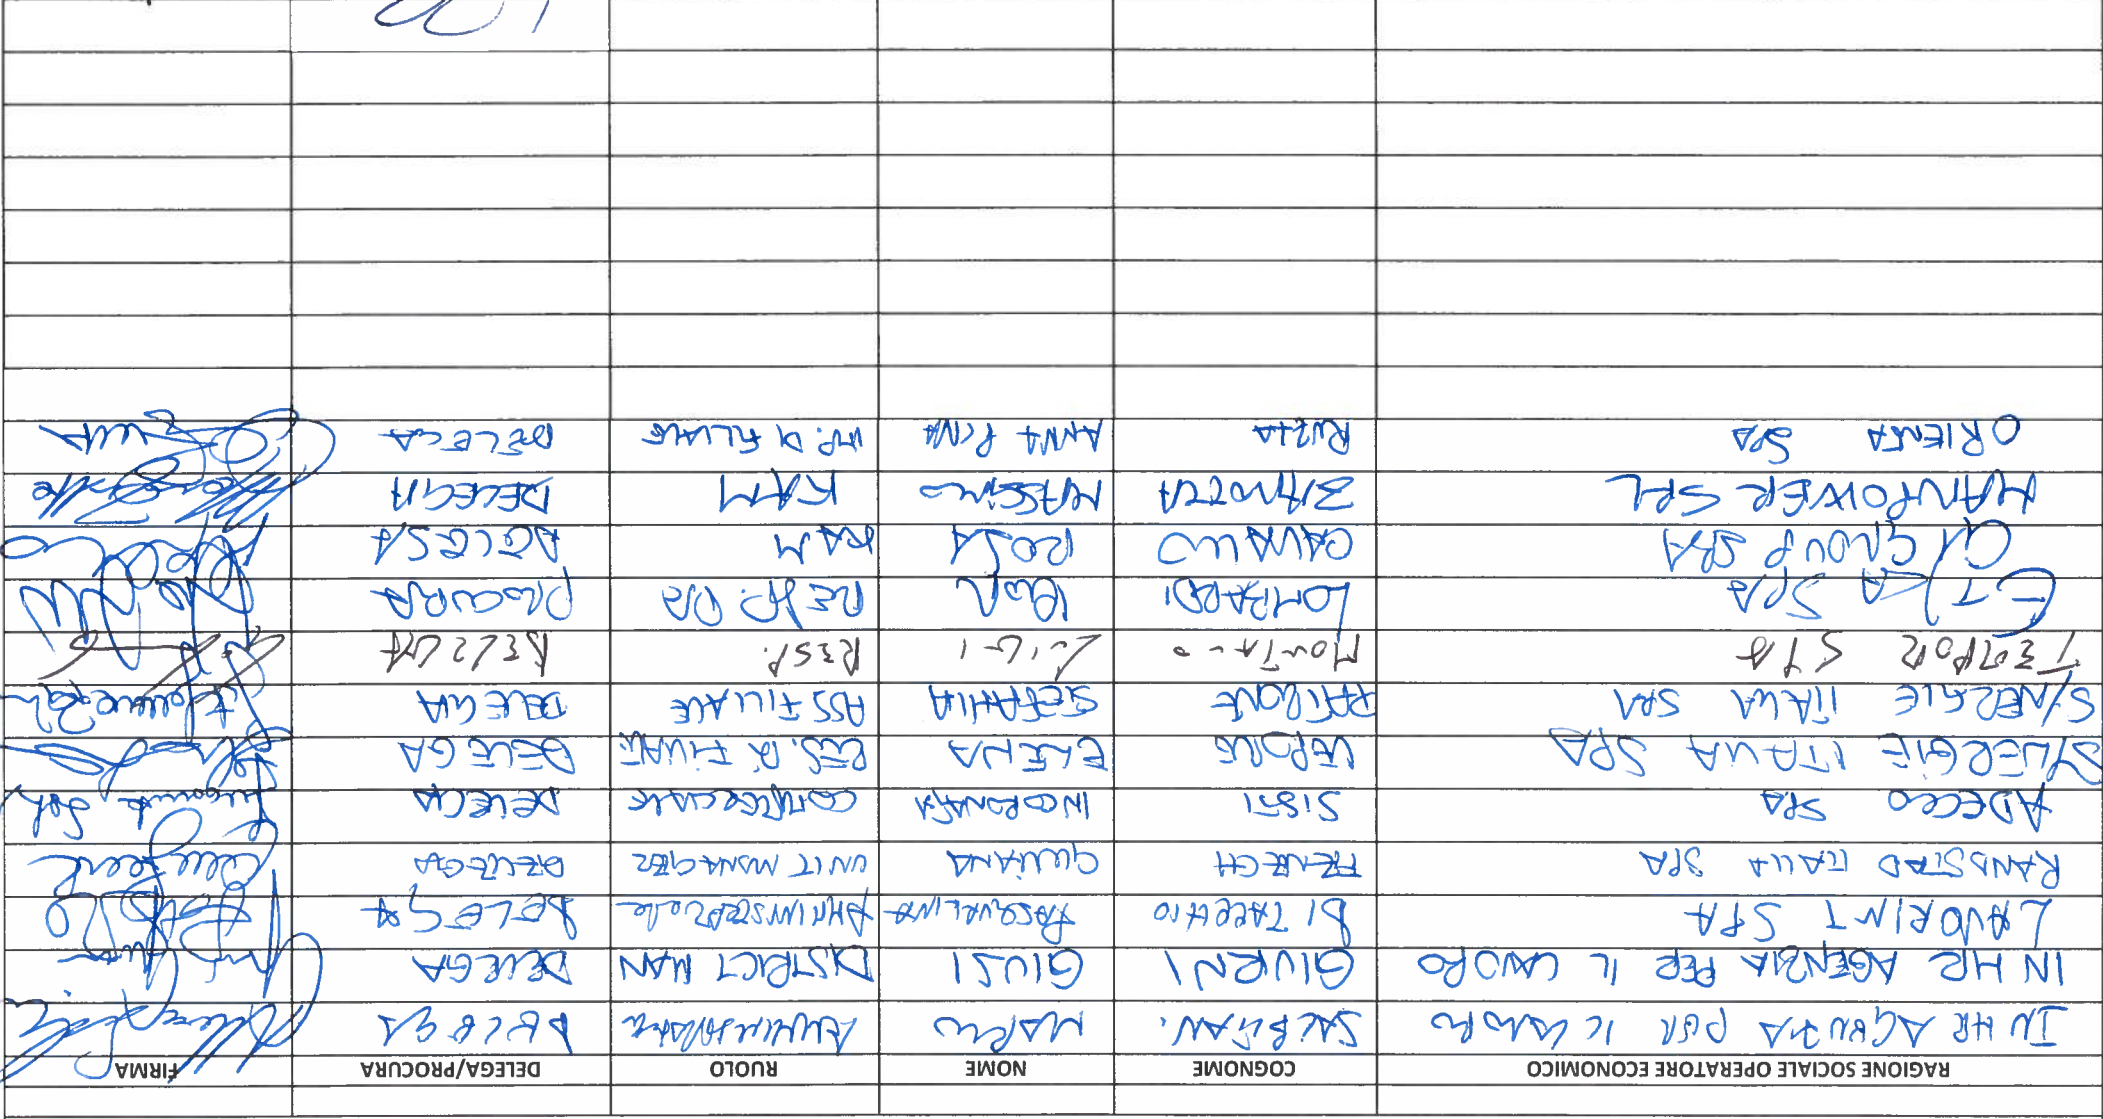 RAGIONE SOCIALE OPERATORE ECONOMICO COGNOME NOME RUOLO DELEGA/PROCURA FIRMA
IN HR AGENZIA PER IL LAVORO MARIO DELEGA
IN HR AGENZIA PER IL LAVORO GIURNI GIUSI DISTRICT MAN DELEGA
LAVORINT SPA DI TACCHIO PASQUALINA DELEGA
RANDSTAD ITALIA SPA FRENECH GIULIANA UNIT MANAGER DELEGA
ADECCO SPA SISTI INCORONATA COMMERCIALE DELEGA
SYNERGIE ITALIA SPA LEPORE ELENA RES. DI FILIALE DELEGA
SYNERGIE ITALIA SPA STEFANIA ASS FILIALE DELEGA
TEMPOR SPA MONTANO LUIGI RESP. DELEGA
ETJCA SPA LOMBARDI RESP. PROCURA
GI GROUP SPA CAVALLO ROSA KAM DELEGA
MANPOWER SRL MASSIMO KAM DELEGA
ORIENTA SPA ANNA PINA IMP. DI FILIALE DELEGA